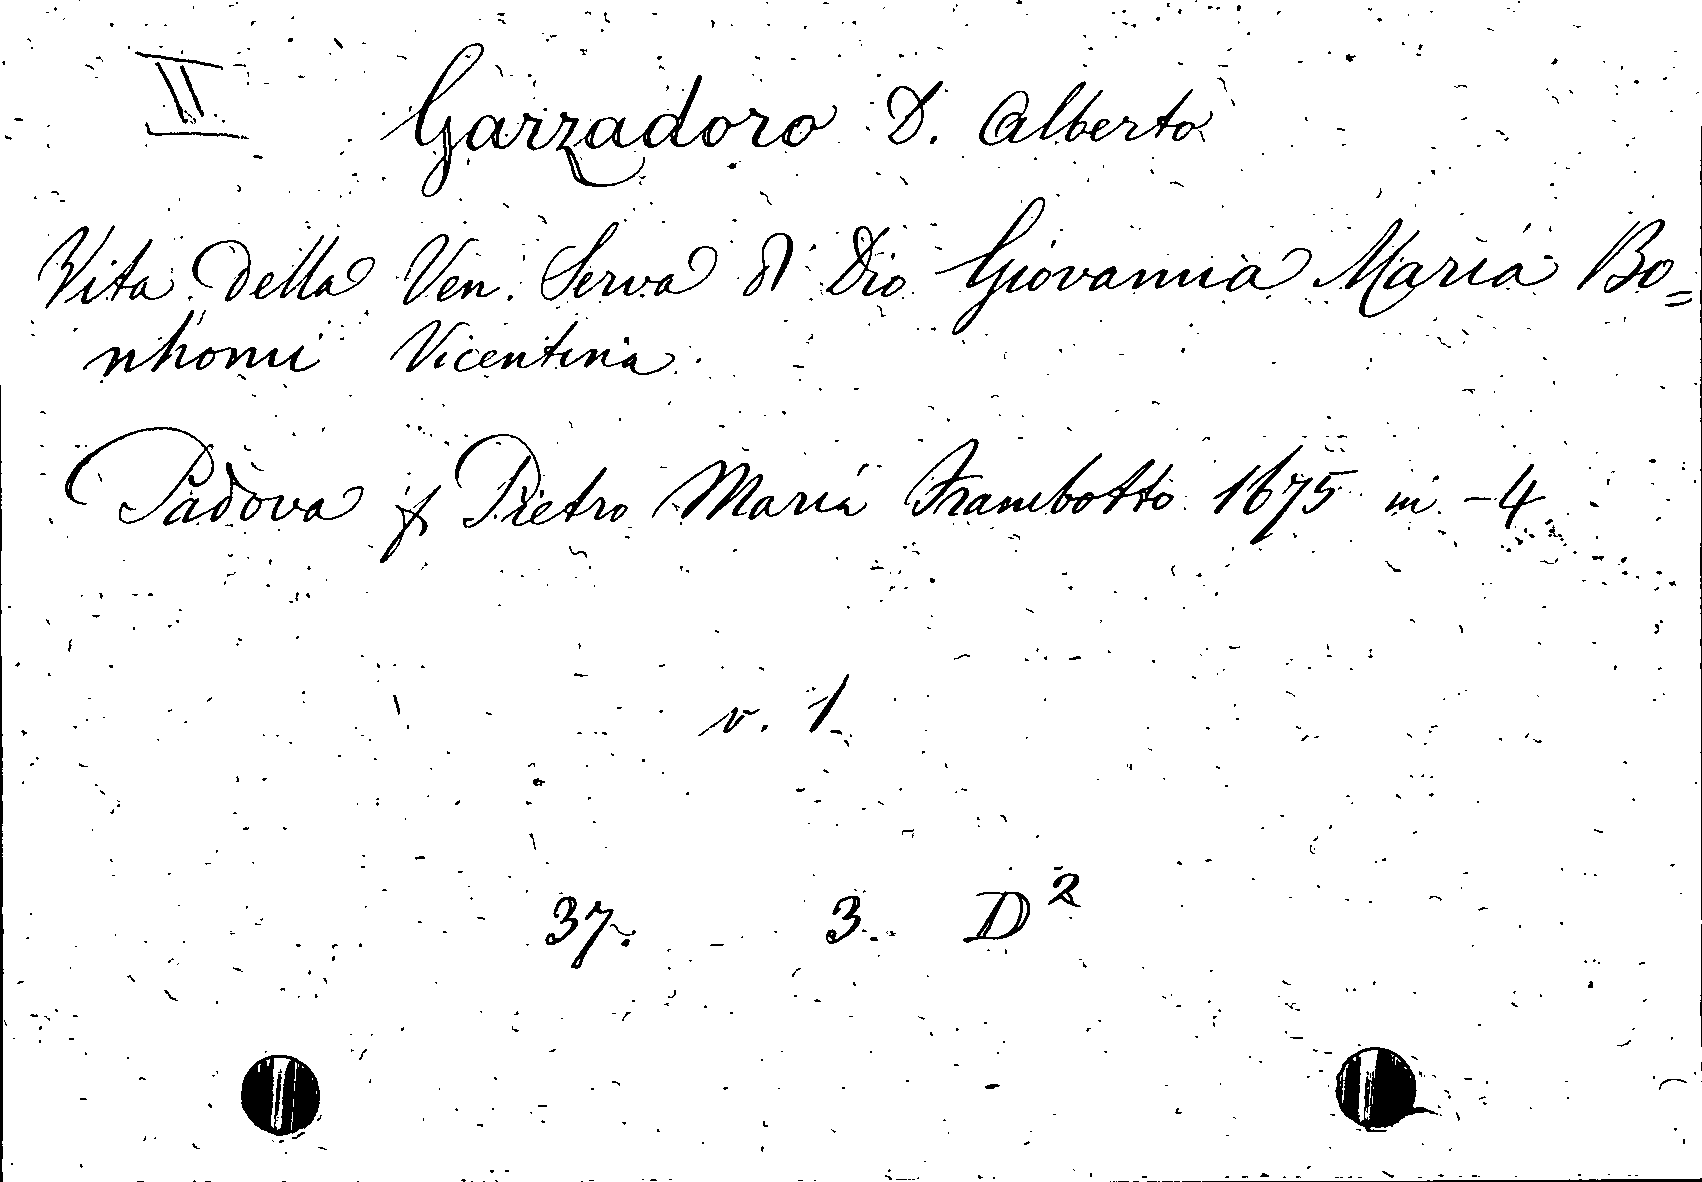 II Garzadoro D. Alberto
Vita della Ven. Serva di Dio Giovanna Maria Bo=
nhomi Vicentina
Padova f Pietro Maria Frambotto 1675 in -4
v. 1
37. 3. D²